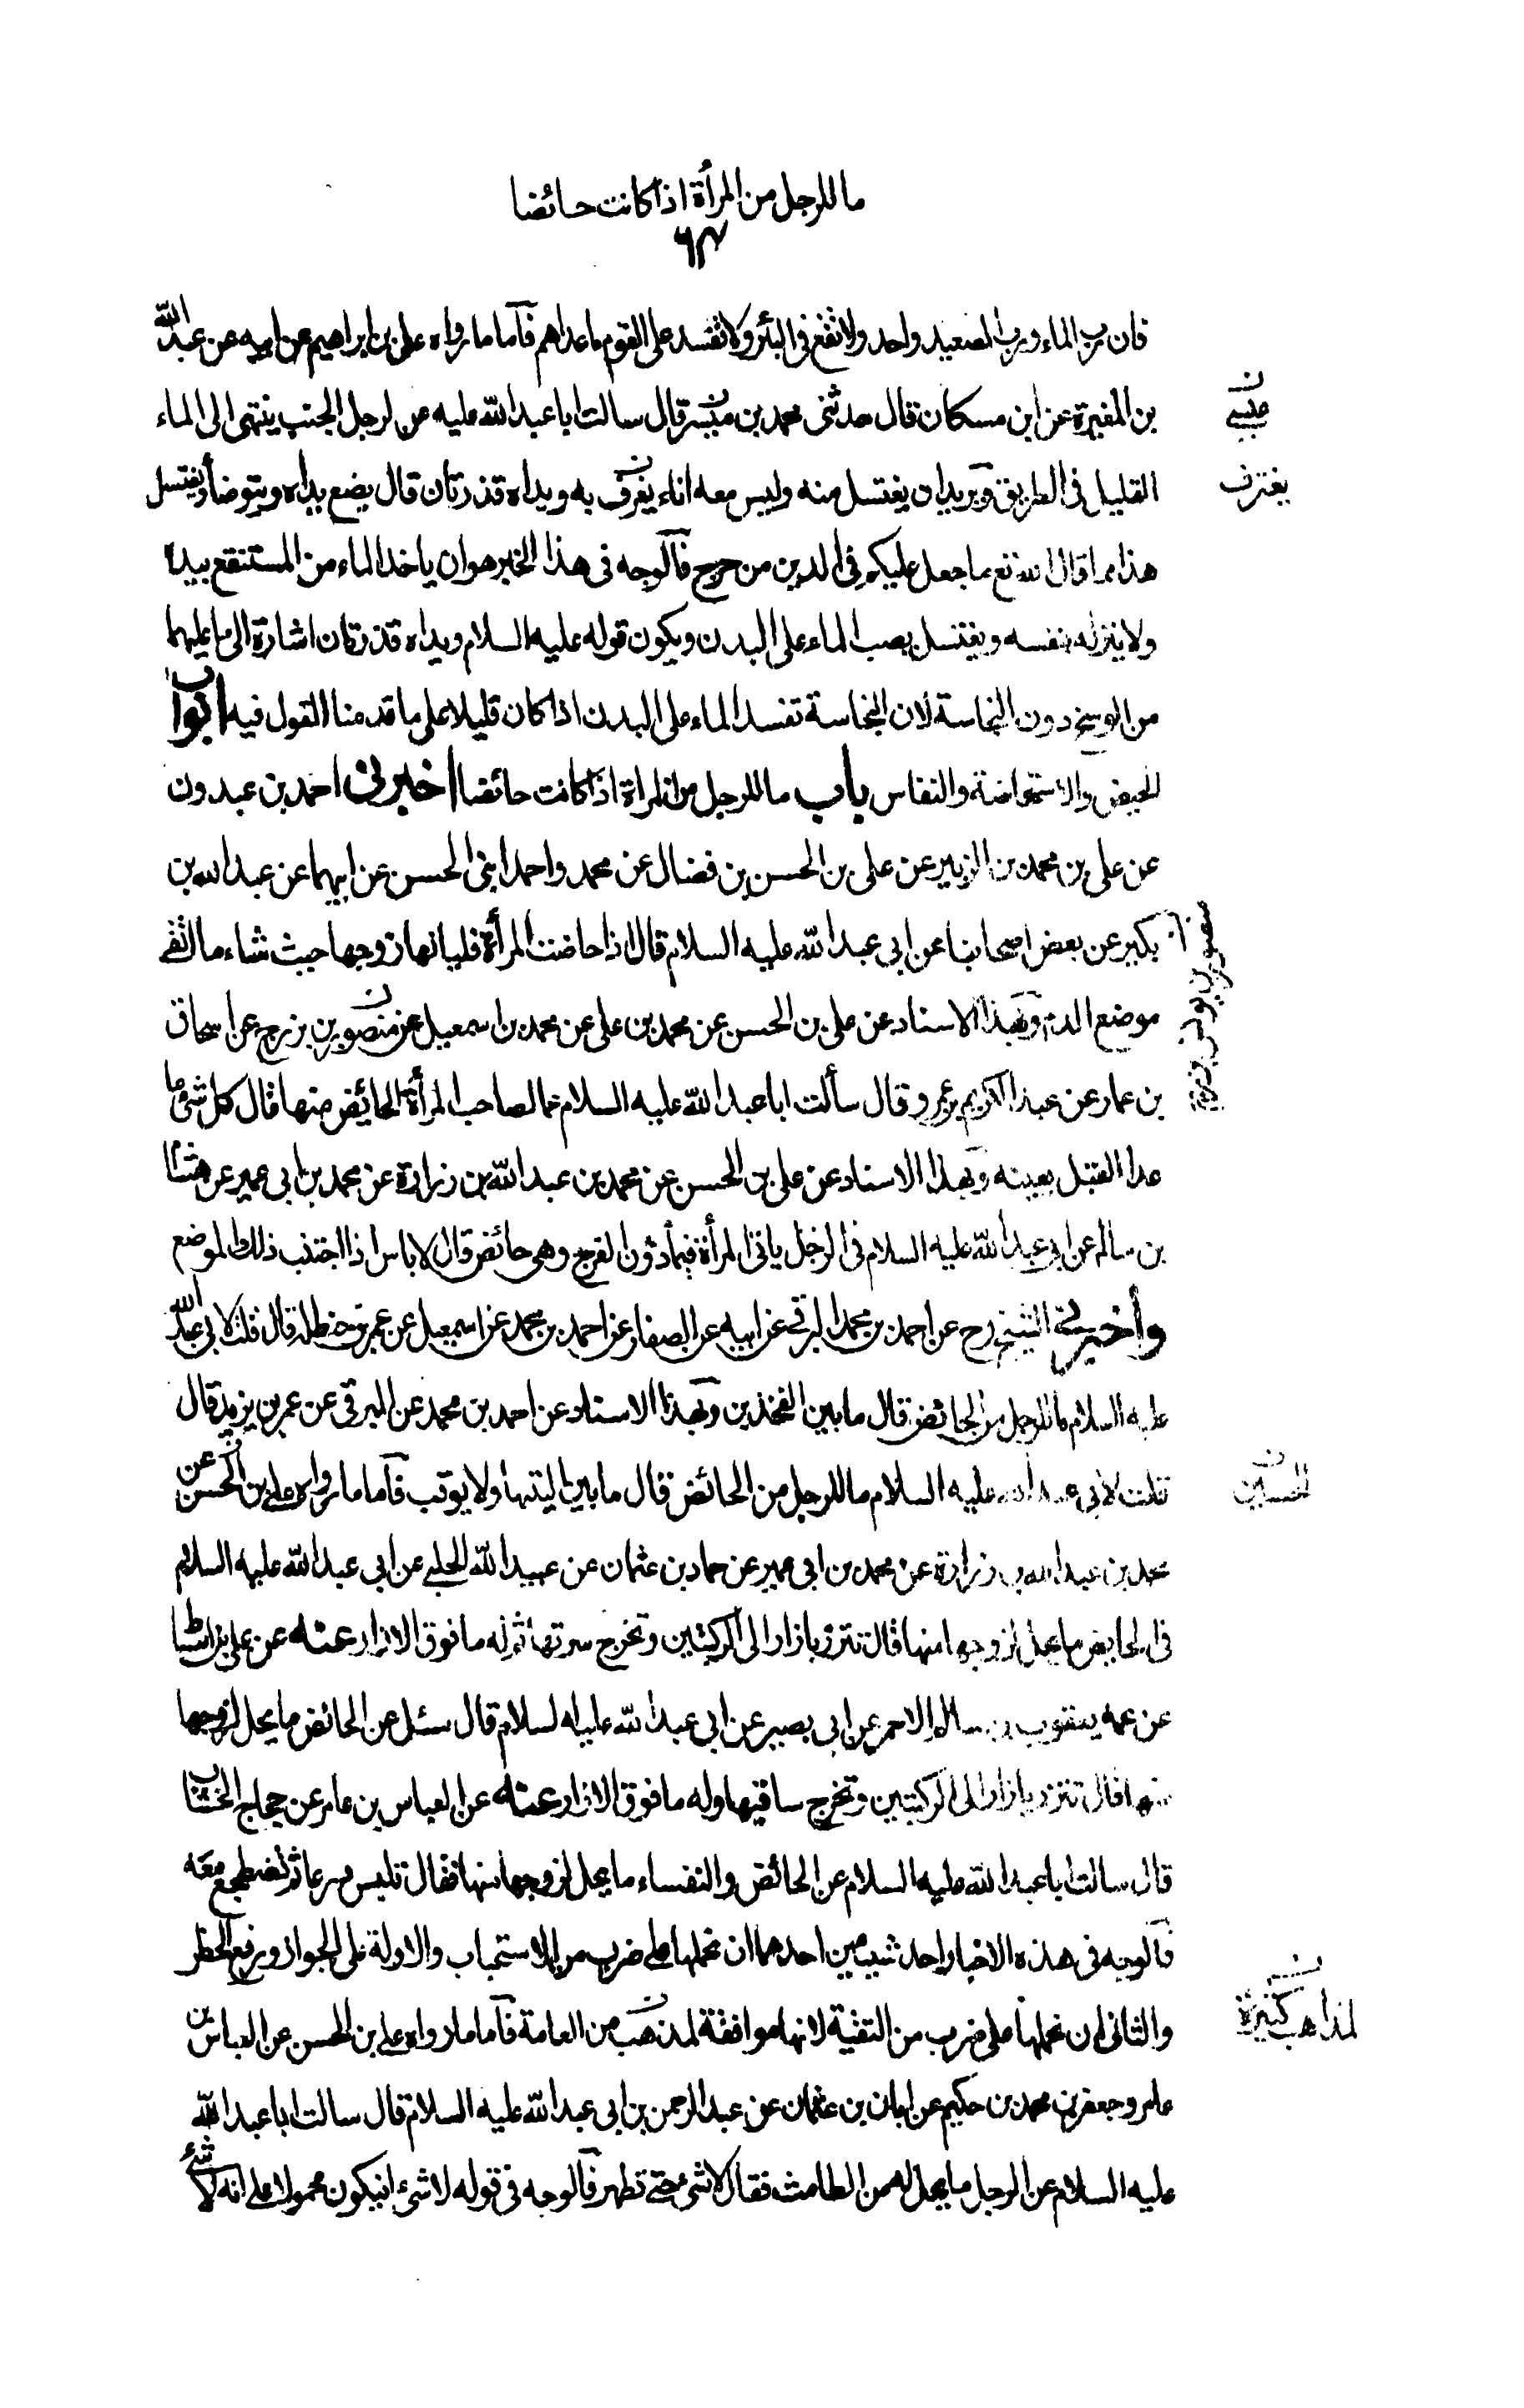 ما للرجل من المرأة اذا كانت حائضا
٦٣
فان رب الماء ورب الصعيد واحد ولا تقع فى البئر ولا تفسد على القوم ماءهم فاما ما رواه على بن ابراهيم عن ابيه عن عبد الله
بن المغيرة عن ابن مسكان قال حدثنى محمد بن ميسر قال سالت ابا عبد الله عليه عن الرجل الجنب ينتهى الى الماء
عيسى ن
القليل فى الطريق ويريد ان يغتسل منه وليس معه اناء يغرف به ويداه قذرتان قال يضع يداه ويتوضأ ويغتسل
يغترف ن
هذا مما قال الله تع ما جعل عليكم فى الدين من حرج فالوجه فى هذا الخبر هو ان ياخذ الماء من المستنقع بيده
ولا ينزله بنفسه ويغتسل بصب الماء على البدن ويكون قوله عليه السلام ويداه قذرتان اشارة الى ما عليهما
من الوسخ دون النجاسة لان النجاسة تفسد الماء على البدن اذا كان قليلا على ما قدمنا القول فيه ابواب
الحيض والاستحاضة والنفاس باب ما للرجل من المراة اذا كانت حائضا اخبرنى احمد بن عبدون
عن على بن محمد بن الزبير عن على بن الحسن بن فضال عن محمد واحمد ابنى الحسن عن ابيهما عن عبد الله بن
بكير عن بعض اصحابنا عن ابى عبد الله عليه السلام قال اذا حاضت المرأة فلياتها زوجها حيث شاء ما اتقى
موضع الدم وبهذا الاسناد عن على بن الحسن عن محمد بن على عن محمد بن اسمعيل عن منصور بن بزرج عن اسحاق
منصور بن يونس بن بزرج
بن عمار عن عبد الكريم بن عمرو قال سألت ابا عبد الله عليه السلام عما لصاحب المرأة الحائض منها قال كل شئ ما
عدا القبل بعينه وبهذا الاسناد عن على بن الحسن عن محمد بن عبد الله بن زرارة عن محمد بن ابى عمير عن هشام
بن سالم عن ابى عبد الله عليه السلام فى الرجل ياتى المرأة فيما دون الفرج وهى حائض قال لا باس اذا اجتنب ذلك الموضع
وأخبرنى الشيخ رح عن احمد بن محمد البرقى عن ابيه عن الصفار عن احمد بن محمد عن اسمعيل عن عمر بن حنظلة قال قلت لابى عبد الله
عليه السلام ما للرجل من الحائض قال ما بين الفخذين وبهذا الاسناد عن احمد بن محمد عن البرقى عن عمر بن يزيد قال
قلت لابى عبد الله عليه السلام ما للرجل من الحائض قال ما بين اليتيها ولا يوقب فاما ما رواه على بن الحسن عن
الحسين ن
محمد بن عبد الله بن زرارة عن محمد بن ابى عمير عن حماد بن عثمان عن عبيد الله الحلبى عن ابى عبد الله عليه السلام
فى الحايض ما يحل لزوجها منها قال تتزر بازار الى الركبتين وتخرج سرتها ثم له ما فوق الازار عنه عن على بن اسباط
عن عمه يعقوب بن سالم الاحمر عن ابى بصير عن ابى عبد الله عليه السلام قال سئل عن الحائض ما يحل لزوجها
منها قال تتزر بازار الى الركبتين وتخرج ساقيها وله ما فوق الازار عنه عن العباس بن عامر عن حجاج الخشاب
قال سالت ابا عبد الله عليه السلام عن الحائض والنفساء ما يحل لزوجها منها فقال تلبس درعا ثم تضطجع معه
فالوجه فى هذه الاخبار احد شيئين احدهما ان نحملها على ضرب من الاستحباب والاولة على الجواز ورفع الحظر
والثانى ان نحملها على ضرب من التقية لانها موافقة لمذهب من العامة فاما ما رواه على بن الحسن عن العباس بن
لمذاهب كثيرة ن
عامر وجعفر بن محمد بن حكيم عن ابان بن عثمان عن عبد الرحمن بن ابى عبد الله عليه السلام قال سالت ابا عبد الله
عليه السلام عن الرجل ما يحل له من الطامث فقال لا شئ حتى تطهر فالوجه فى قوله لا شئ ان يكون محمولا على انه لا شئ